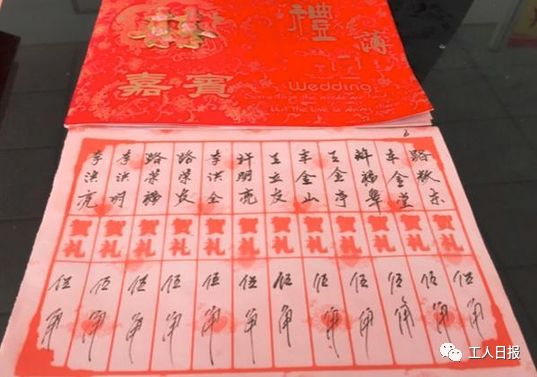 禮簿
嘉賓
Wedding
路敬东 贺礼 伍角
车金堂 贺礼 伍角
贺礼 伍角
王金亭 贺礼 伍角
车金山 贺礼 伍角
王立友 贺礼 伍角
许明亮 贺礼 伍角
李洪全 贺礼 伍角
路荣友 贺礼 伍角
路荣 贺礼 伍角
李洪明 贺礼 伍角
李洪亮 贺礼 伍角
工人日报